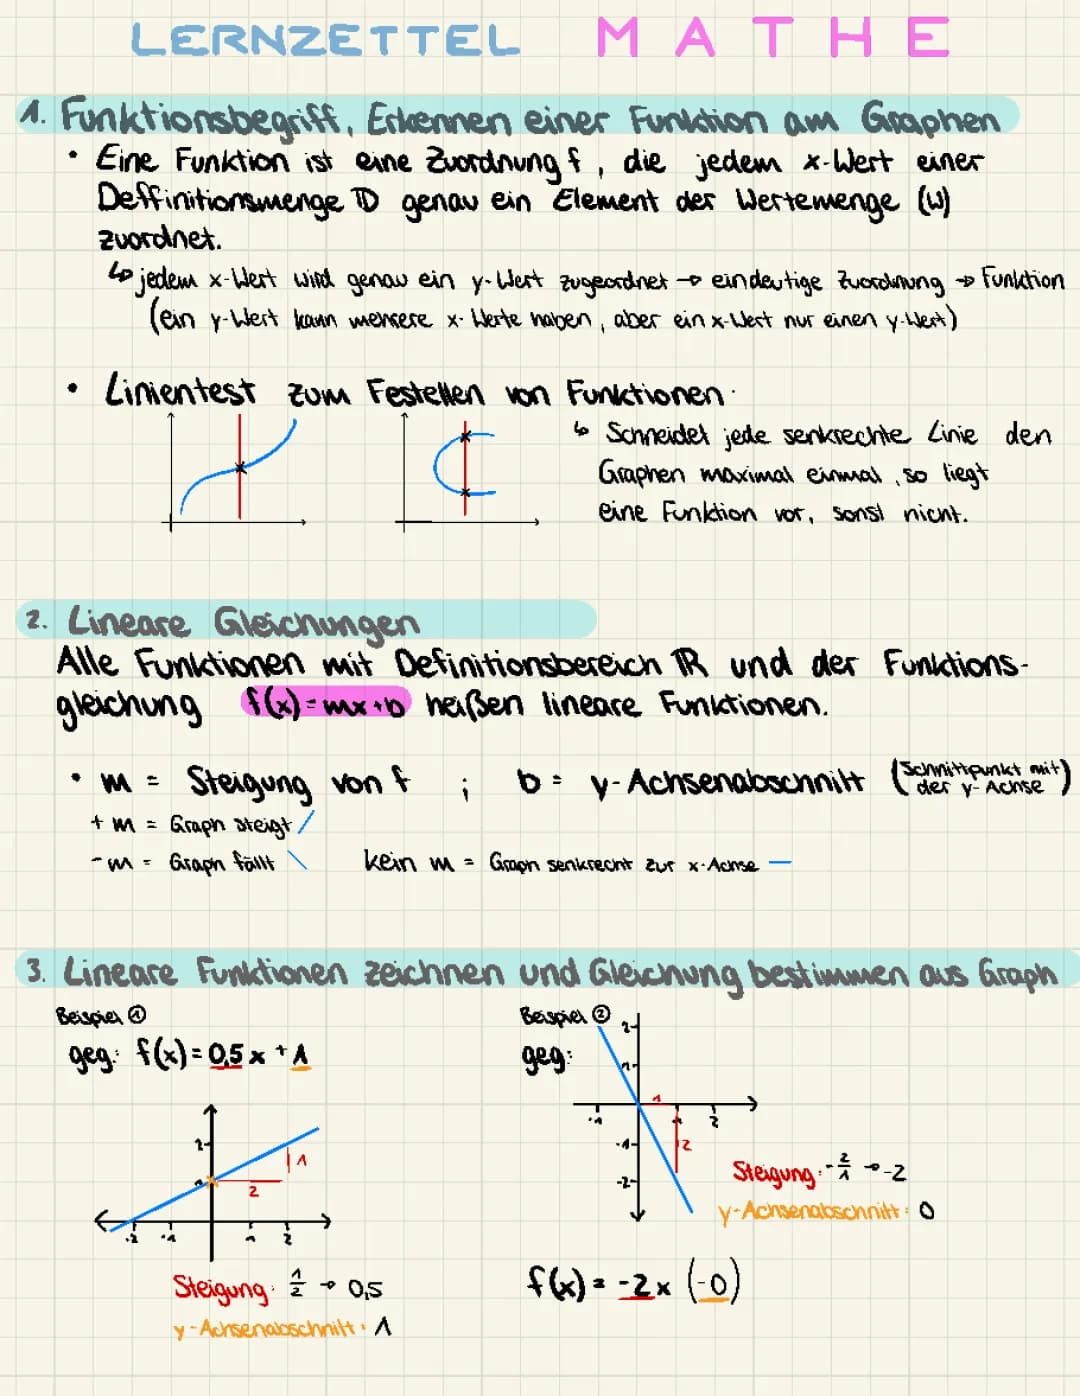 LERNZETTEL MATHE
1. Funktionsbegriff, Erkennen einer Funktion am Graphen
• Eine Funktion ist eine Zuordnung f, die jedem x-Wert einer
Deffinitionsmenge 𝔻 genau ein Element der Wertemenge (W)
zuordnet.
↳ jedem x-Wert wird genau ein y-Wert zugeordnet → eindeutige Zuordnung → Funktion
(ein y-Wert kann mehrere x-Werte haben, aber ein x-Wert nur einen y-Wert)
• Linientest zum Festellen von Funktionen:
↳ Schneidet jede senkrechte Linie den
Graphen maximal einmal, so liegt
eine Funktion vor, sonst nicht.
2. Lineare Gleichungen
Alle Funktionen mit Definitionsbereich ℝ und der Funktions-
gleichung f(x)=mx+b heißen lineare Funktionen.
• m = Steigung von f ; b = y-Achsenabschnitt (Schnittpunkt mit
der y-Achse)
+ m = Graph steigt /
- m = Graph fällt \ kein m = Graph senkrecht zur x-Achse —
3. Lineare Funktionen zeichnen und Gleichung bestimmen aus Graph
Beispiel ①
geg: f(x)=0,5x + 1
2
1
1
2
-2 -1 1 2
Steigung: 1/2 → 0,5
y-Achsenabschnitt: 1
Beispiel ②
geg:
2
1
1
-1 1 2
-1
2
-2
Steigung: -2/1 → -2
y-Achsenabschnitt: 0
f(x) = -2x (-0)